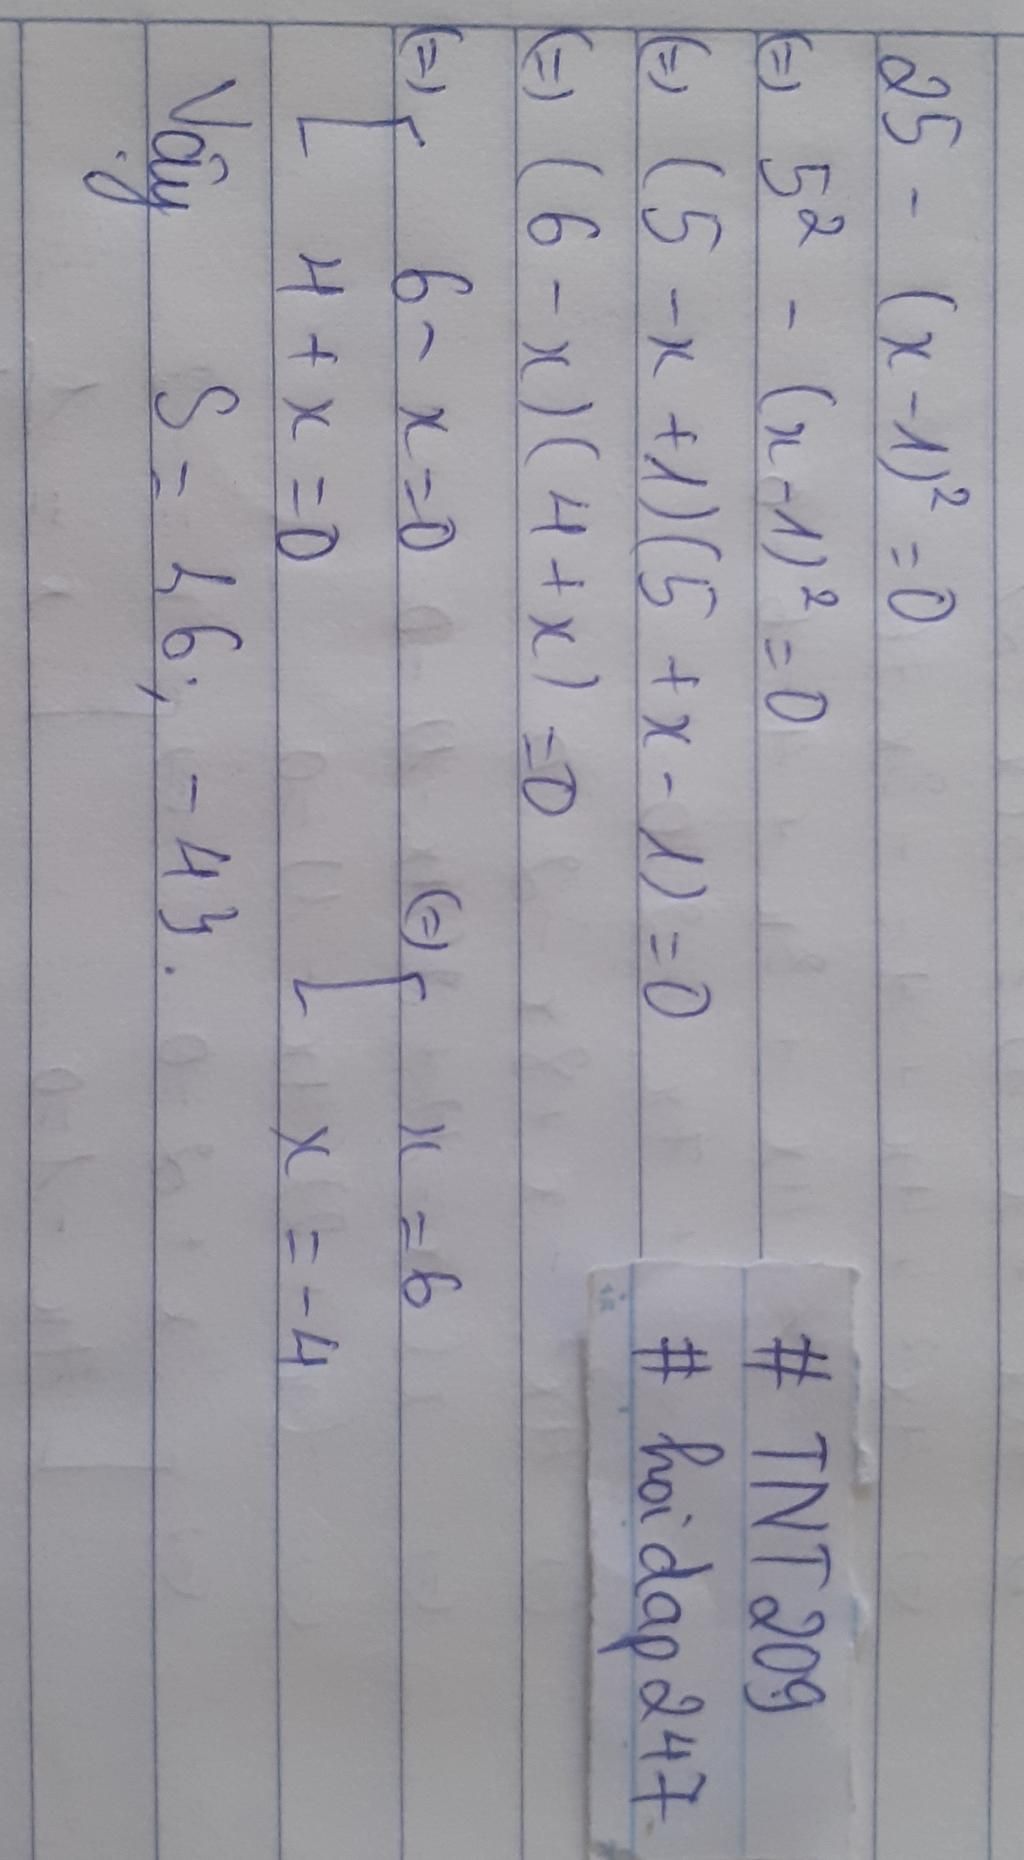 25 - (x - 1)² = 0
(=) 5² - (x - 1)² = 0
(=) (5 - x + 1)(5 + x - 1) = 0
(=) (6 - x)(4 + x) = 0
(=) [ 6 - x = 0 (=) [ x = 6
4 + x = 0 x = -4
Vậy S = {6; -4}.
# TNT 209
# hoidap247